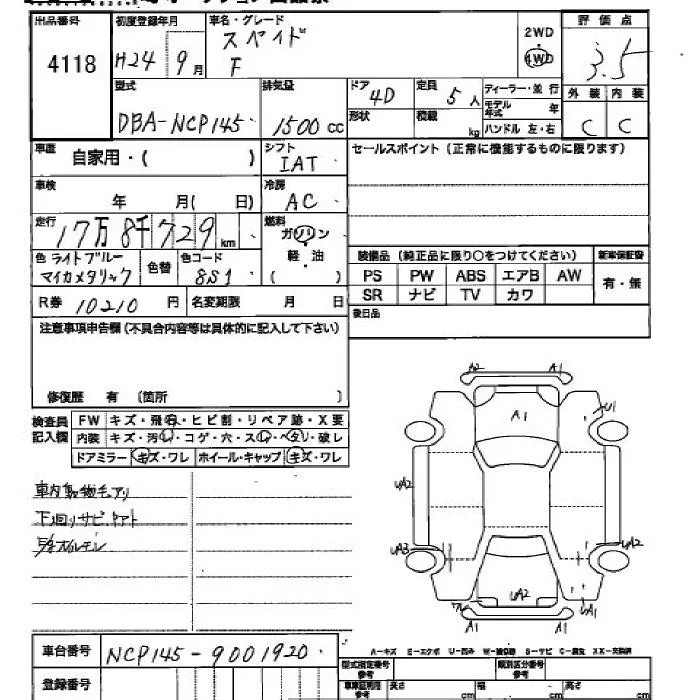 出品番号 初度登録年月 車名・グレード 評価点
4118 H24年 9月 スペイド F 2WD 4WD 3.5
型式 排気量 ドア 定員 ディーラー・並行 外装 内装
DBA-NCP145 1500cc 4D 5人 モデル年式 年 C C
形状 積載 kg ハンドル 左・右
車歴 自家用・( ) シフト IAT セールスポイント(正常に機能するものに限ります)
車検 年 月( 日) 冷房 AC
走行 17万8千729km 燃料 ガソリン
軽油
( )
色 ライトブルーマイカメタリック 色替 色コード 8S1
装備品(純正品に限り○をつけてください) 新車保証書
PS PW ABS エアB AW 有・無
SR ナビ TV カワ
R券 10210円 名変期限 月 日 後日品
注意事項申告欄(不具合内容等は具体的に記入して下さい)
修復歴 有 〔箇所 〕
検査員記入欄 FW キズ・飛石・ヒビ割・リペア跡・X要
内装 キズ・汚レ・コゲ・穴・スレ・ヘタリ・破レ
ドアミラー キズ・ワレ ホイール・キャップ キズ・ワレ
下回りサビ
A2 A1
A1
U1
UA2
UA3 UA2
UA2
UA1
A1 A1
車台番号 NCP145-9001920
A-キズ E-エクボ U-凹み W-補修跡 S-サビ C-腐食 XX-交換済
登録番号 型式指定番号 参考 類別区分番号 参考
車庫証明用 参考 長さ cm 幅 cm 高さ cm